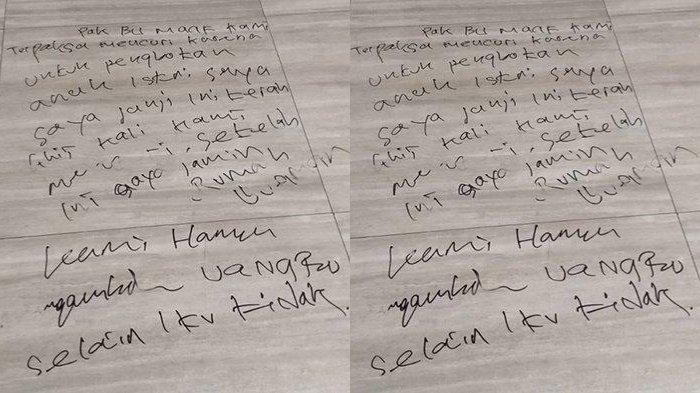 Pak Bu Maaf Kami
Terpaksa mencuri karena
untuk pengobatan
anak Istri saya
saya janji Ini
kali kami
setelah
Ini saya jamin
Rumah
Kami Hanya
ngambil uang
selain Itu tidak.
Pak Bu Maaf Kami
Terpaksa mencuri karena
untuk pengobatan
anak Istri saya
saya janji Ini
kali kami
setelah
Ini saya jamin
Rumah
Kami Hanya
ngambil uang
selain Itu tidak.